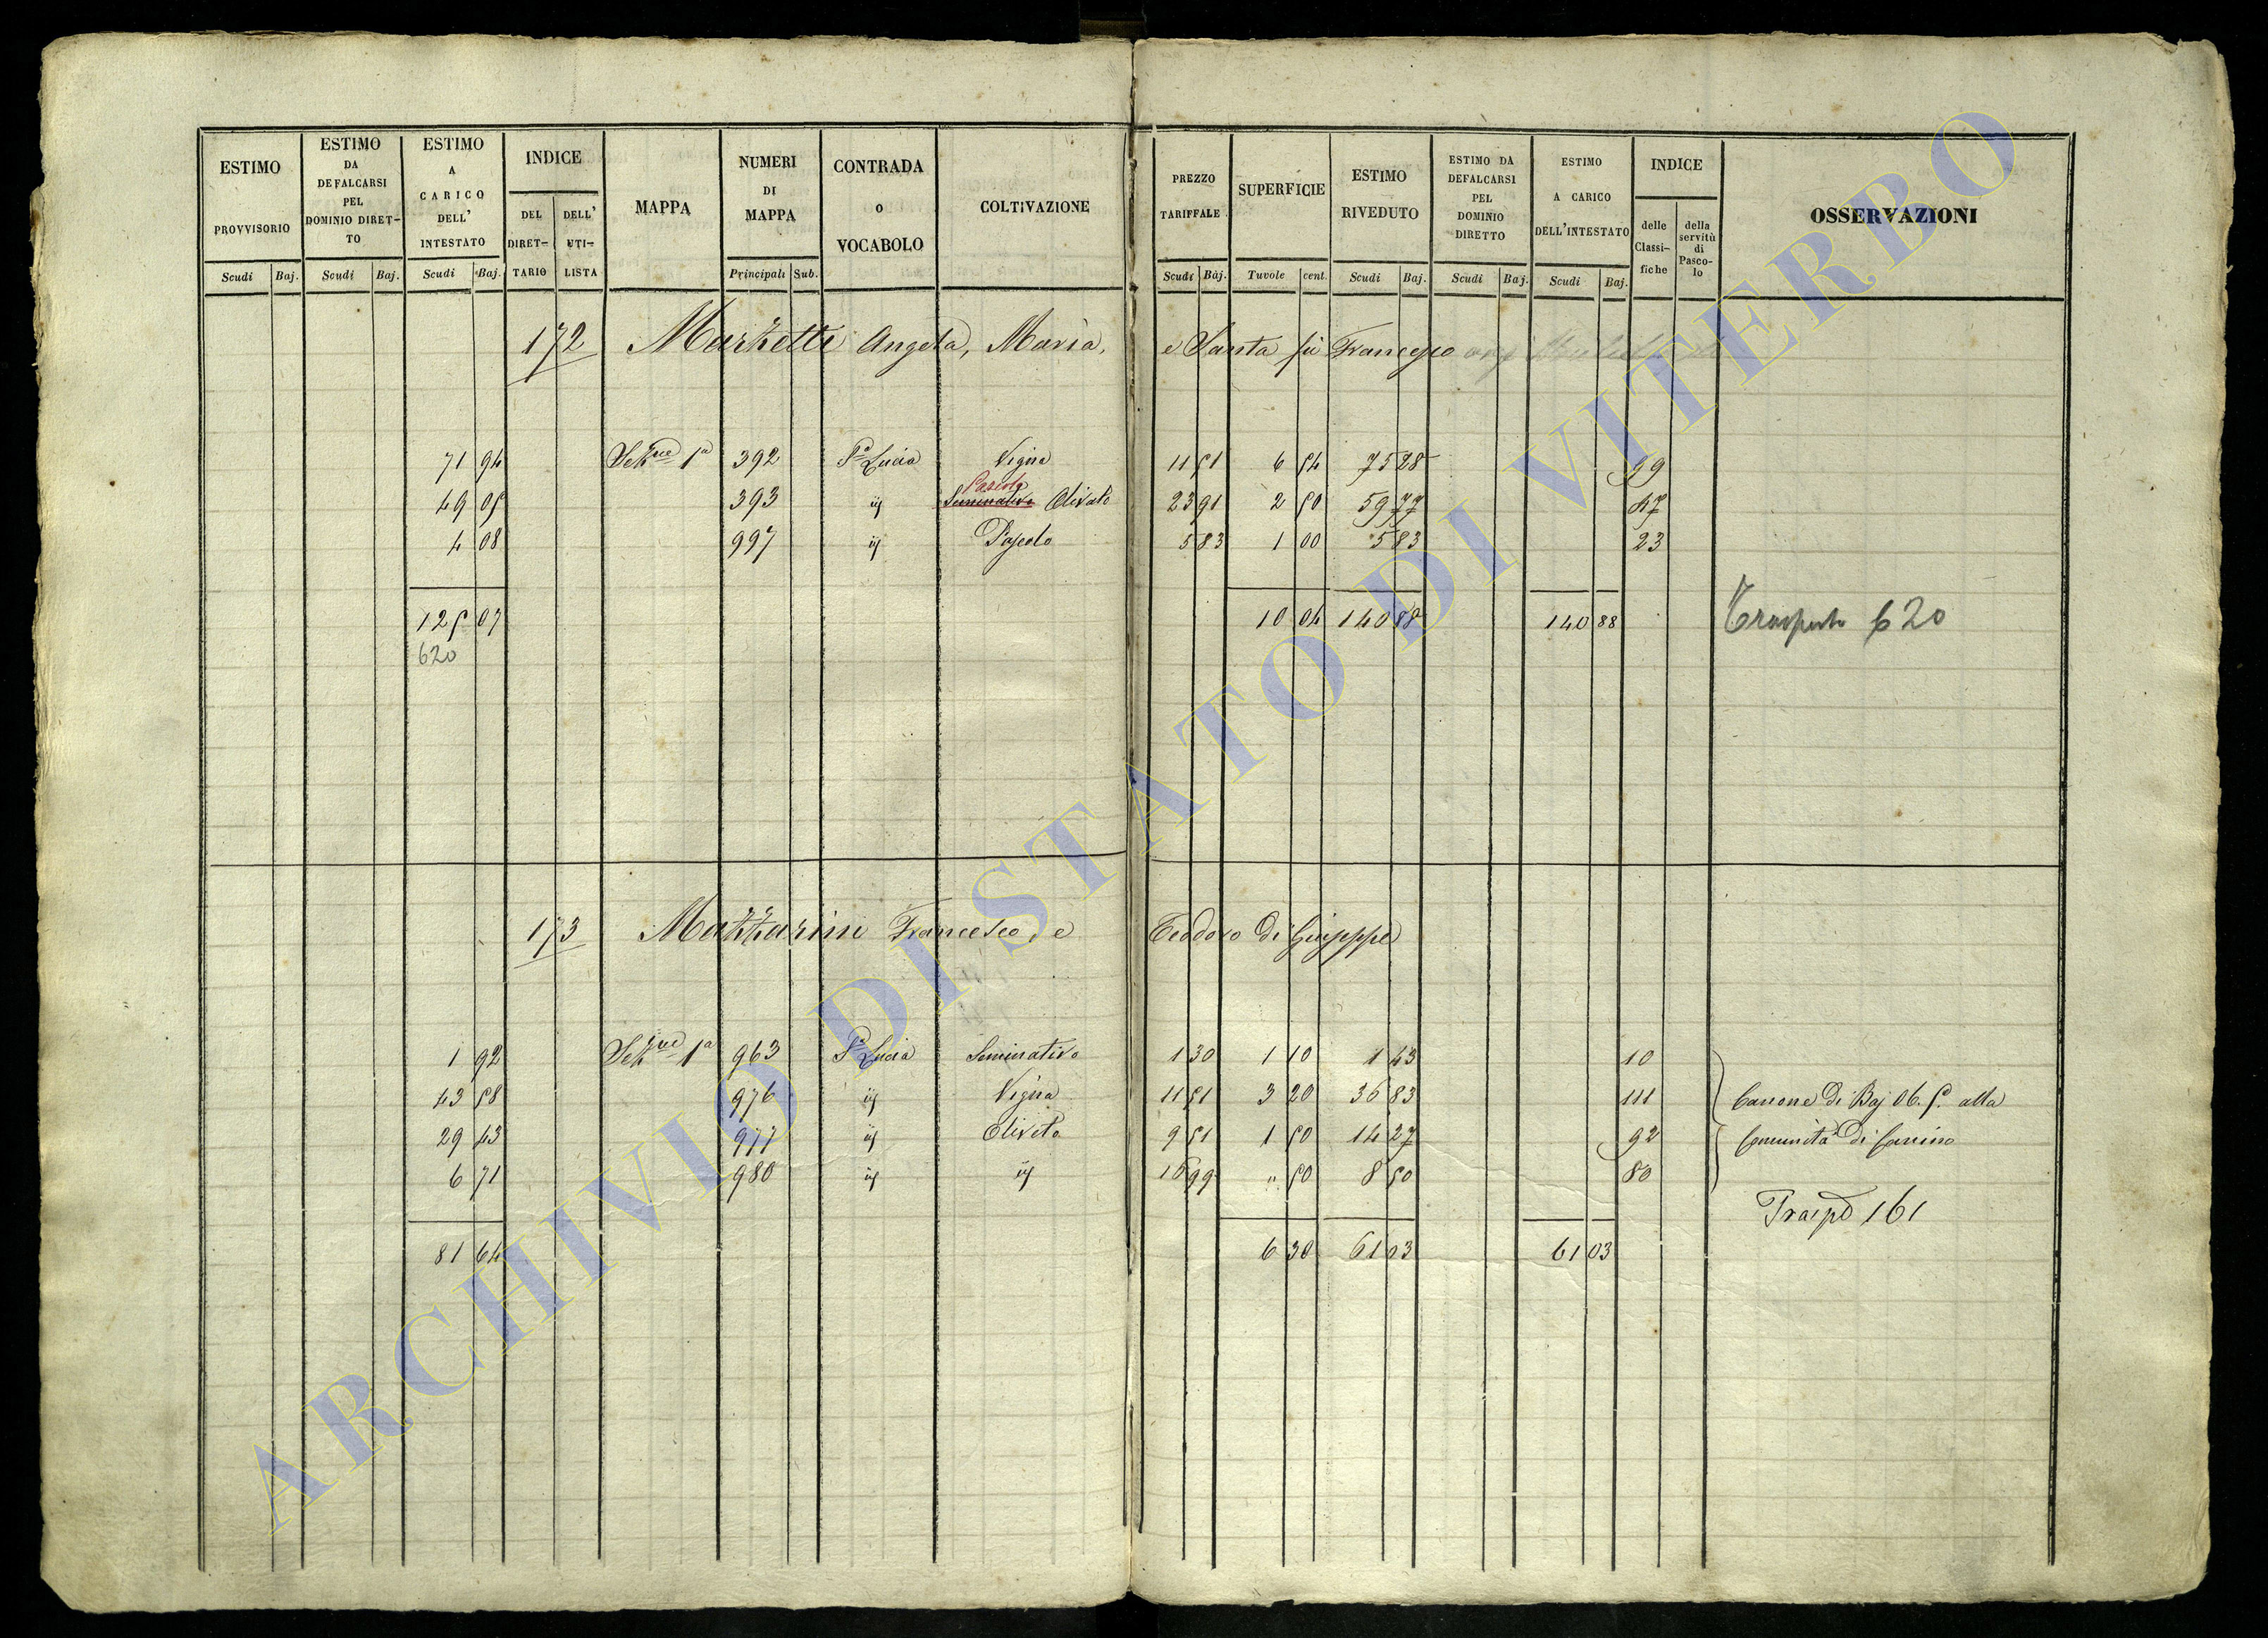 ESTIMO PROVVISORIO
ESTIMO DA DEFALCARSI PEL DOMINIO DIRET-TO
ESTIMO A CARICO DELL' INTESTATO
INDICE
DEL DIRET-TARIO
DELL' UTI-LISTA
MAPPA
NUMERI DI MAPPA
CONTRADA o VOCABOLO
COLTIVAZIONE
PREZZO TARIFFALE
SUPERFICIE
ESTIMO RIVEDUTO
ESTIMO DA DEFALCARSI PEL DOMINIO DIRETTO
ESTIMO A CARICO DELL'INTESTATO
INDICE
delle Classi-fiche
della servitù di Pasco-lo
OSSERVAZIONI
Scudi Baj. Scudi Baj. Scudi Baj. Principali Sub. Scudi Baj. Tuvole cent. Scudi Baj. Scudi Baj. Scudi Baj.
172 Marzetti Angela, Maria, e Santa fù Francesco
71 94 Sezne 1a 392 Sa Lucia Vigna 11 51 6 54 75 28 99
Pascolo
49 05 393 id Seminativo Olivato 23 91 2 50 59 77 47
4 08 997 id Pascolo 5 83 1 00 5 83 23
125 07 10 04 140 88 140 88 Trasporto 620
620
173 Mazzarini Francesco, e Teodoro di Giuseppe
1 92 Sezne 1a 963 Sa Lucia Seminativo 1 30 1 10 1 43 10
43 58 976 id Vigna 11 51 3 20 36 83 111 Canone di Baj 06.5. alla
29 43 977 id Oliveto 9 51 1 50 14 27 92 Comunità di Canino
6 71 980 id id 16 99 " 50 8 50 80
Traspo 161
81 64 6 30 61 03 61 03
ARCHIVIO DI STATO DI VITERBO